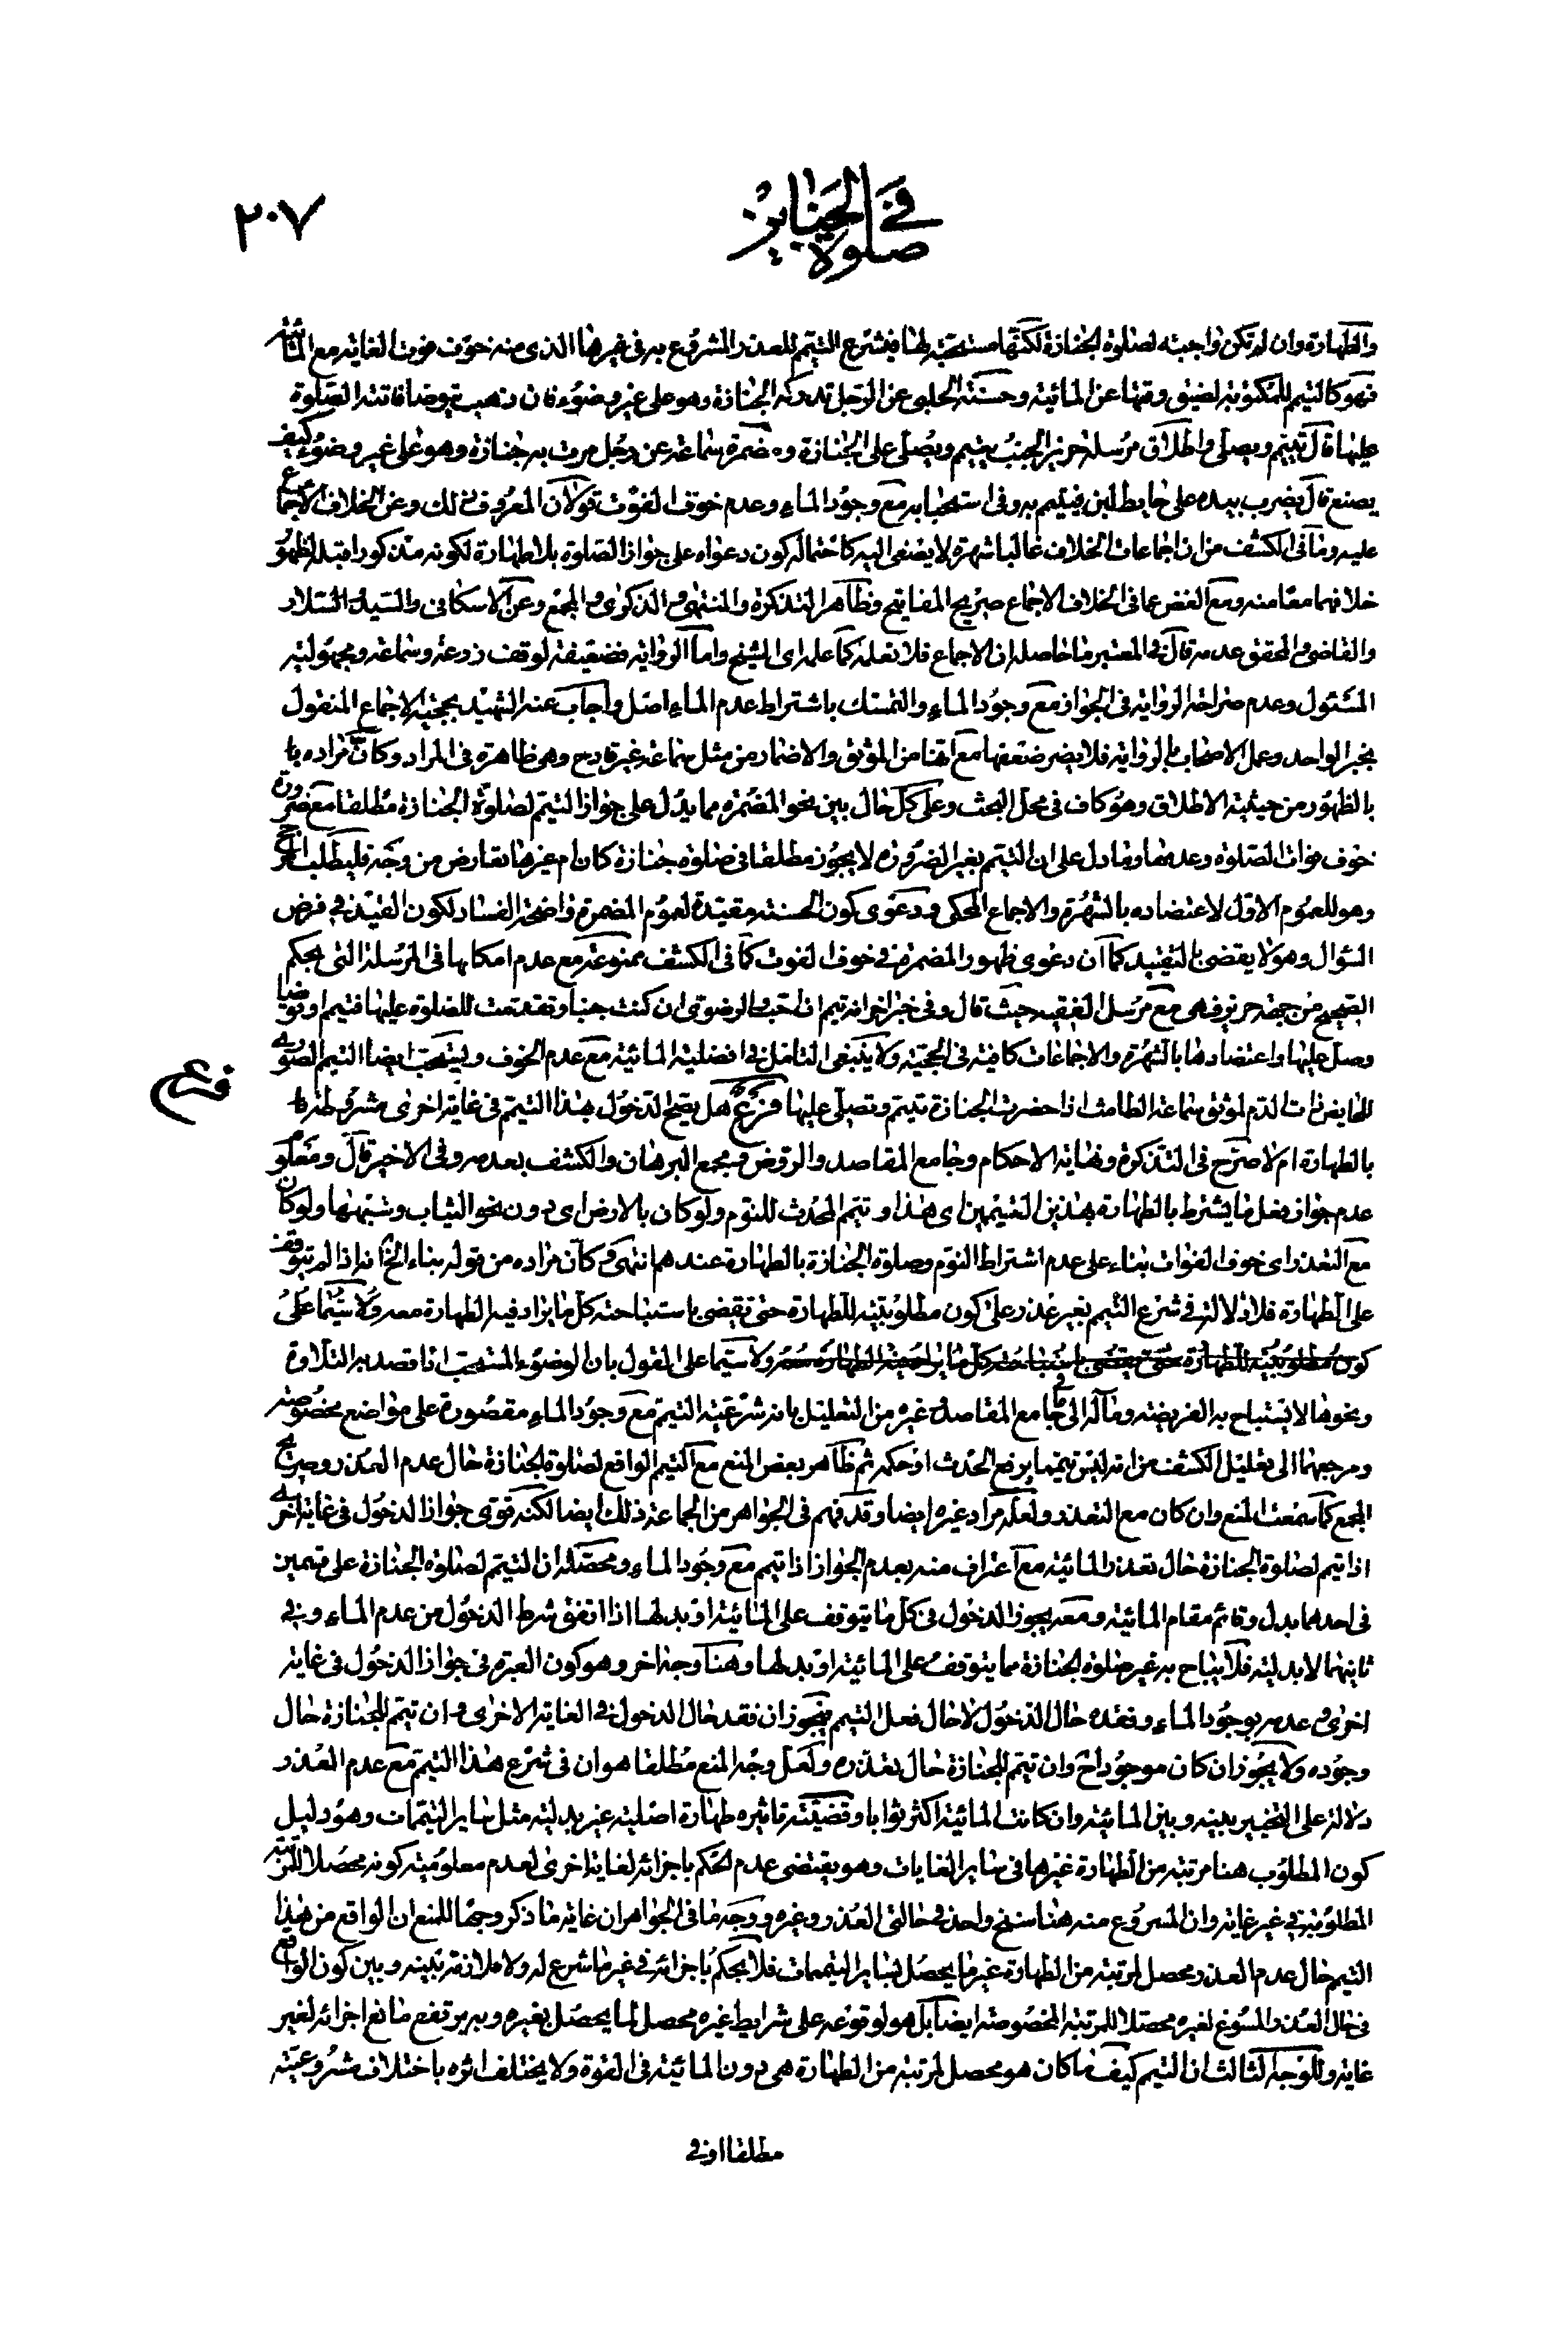 ٢٠٧
في صلوة الجنايز
والطهارة وان لم تكن واجبته لصلوة الجنازة لكنها مستحبة لها فيشرع التيمم للعذر المشروع به في غيرها الذى منه خوف فوت الغاية مع المائية
فهو كالتيمم للمكتوبة لضيق وقتها عن المائية وحسنة الحلبى عن الرجل تدركه الجنازة وهو على غير وضوء فان ذهب يتوضا فاتته الصلوة
عليها قال يتيمم ويصلى واطلاق مرسلة حريز الجنب يتيمم ويصلى على الجنازة ومضمرة سماعة عن رجل مرت به جنازة وهو على غير وضوء كيف
يصنع قال يضرب بيده على حايط لبن فيتيمم به وفى استحبابه مع وجود الماء وعدم خوف الفوت قولان المعروف ذلك وعن الخلاف الاجماع
عليه وما فى الكشف من ان اجماعات الخلاف غالبا شهرة لا يصغى اليه كاحتمال كون دعواه على جواز الصلوة بلا طهارة لكونه مذكورا قبله لظهور
خلافهما معا منه ومع الغض عما فى الخلاف الاجماع صريح المفاتيح وظاهر التذكرة والمنتهى والذكرى والمجمع وعن الاسكافى والسيد والسلار
والقاضى والمحقق عدمه قال فى المعتبر ما حاصله ان الاجماع فلا نعلمه كما علمه راى الشيخ واما الرواية فضعيفة لوقف زرعة وسماعة ومجهولية
المسئول وعدم صراحة الرواية فى الجواز مع وجود الماء والتمسك باشتراط عدم الماء اصل واجاب عنه الشهيد بحجية الاجماع المنقول
بخبر الواحد وعمل الاصحاب بالرواية فلا يضر ضعفها مع انها من الموثق والاضمار من مثل سماعة غير قادح وهى ظاهرة فى المراد وكان مراده با
بالظهور من حيثية الاطلاق وهو كاف فى محل البحث وعلى كل حال بين نحو المضمرة مما يدل على جواز التيمم لصلوة الجنازة مطلقا مع ضرورة
خوف فوات الصلوة وعدمها وما دل على ان التيمم بغير الضرورة لا يجوز مطلقا فى صلوة جنازة كان ام غيرها تعارض من وجه فليطلب الراجح
وهو للعموم الاول لاعتضاده بالشهرة والاجماع المحكى ودعوى كون الحسنة مقيدة لعموم المضمرة واضحة الفساد لكون القيد في فرض
السؤال وهو لا يقضى بالتقييد كما ان دعوى ظهور المضمرة في خوف الفوت كما فى الكشف ممنوعة مع عدم امكانها فى المرسلة التى بحكم
الصحيح من جهة حريز فهى مع مرسل الفقيه حيث قال وفى خبر اخر انه تيمم ان احب والرضوى ان كنت جنبا وتقدمت للصلوة عليها فتيمم او توضا
وصل عليها واعتضادها بالشهرة والاجماعات كافية فى الحجية ولا ينبغى التامل في افضلية المائية مع عدم الخوف ويستحب ايضا التيمم الصورى
للحايض ذات الدم لموثق سماعة الطامث اذا حضرت الجنازة تتيمم وتصلى عليها فرع هل يصح الدخول بهذا التيمم فى غاية اخرى مشروطة با
فرع
بالطهارة ام لا صرح فى التذكرة ونهاية الاحكام وجامع المقاصد والروض ومجمع البرهان والكشف بعدمه وفى الاخير قال ومعلوم
عدم جواز فعل ما يشترط بالطهارة بهذين التيممين اى هذا وتيمم المحدث للنوم ولو كان بالارض اى دون نحو الثياب وشبهها ولو كان
مع التعذر اى خوف الفوات بناء على عدم اشتراط النوم وصلوة الجنازة بالطهارة عندهم انتهى وكان مراده من قوله بناء الخ انه اذا لم تتوقف
على الطهارة فلا دلالة في شرع التيمم بغير عذر على كون مطلوبيته للطهارة حتى تقضى باستباحته كل ما يراد فيه الطهارة معه ولا سيما على
كون مطلوبيته للطهارة حتى يقضى باستباحته كل ما يراد فيه الطهارة معه ولا سيما على القول بان الوضوء المستحب اذا قصد به التلاوة
ونحوها لا يستباح به الفريضة ومآله الى ما في جامع المقاصد وغيره من التعليل بانه شرعية التيمم مع وجود الماء مقصورة على مواضع مخصوصة
ومرجعها الى تعليل الكشف من انه ليس تيمما برفع الحدث او حكمه ثم ظاهر بعض المنع مع التيمم الواقع لصلوة الجنازة حال عدم العذر وصريح
المجمع كما سمعت المنع وان كان مع التعذر ولعله مراد غيره ايضا وقد فهم فى الجواهر من الجماعة ذلك ايضا لكنه قوى جواز الدخول فى غاية اخرى
اذا تيمم لصلوة الجنازة حال تعذر المائية مع اعتراف منه بعدم الجواز اذا تيمم مع وجود الماء ومحصله ان التيمم لصلوة الجنازة على قسمين
فى احدهما بدل وقائم مقام المائية ومعه يجوز الدخول فى كل ما يتوقف على المائية او بدلها اذا اتفق شرط الدخول من عدم الماء وفي
ثانيهما لا بدلية فلا يباح به غير صلوة الجنازة مما يتوقف على المائية او بدلها وهنا وجه اخر وهو كون العبرة فى جواز الدخول فى غاية
اخرى وعدمه بوجود الماء وفقده حال الدخول لا حال فعل التيمم فيجوز ان فقد حال الدخول في الغاية الاخرى وان تيمم للجنازة حال
وجوده ولا يجوز ان كان موجودا ح وان تيمم للجنازة حال تعذره ولعل وجه المنع مطلقا هو ان فى شرع هذا التيمم مع عدم العذر
دلالة على التخيير بينه وبين المائية وان كانت المائية اكثر ثوابا وقضيته تاثيره طهارة اصلية غير بدلية مثل ساير التيممات وهو دليل
كون المطلوب هنا مرتبة من الطهارة غيرها فى ساير الغايات وهو يقتضى عدم الحكم باجزائه لغاية اخرى لعدم معلومية كونه محصلا للمرتبة
المطلوبة في غير غايته وان المشروع منه هنا سنخ واحد فى حالتى العذر وغيره ووجه ما فى الجواهر ان غاية ما ذكر وجها للمنع ان الواقع من هذا
التيمم حال عدم العذر محصل لمرتبة من الطهارة غير ما يحصل لساير التيممات فلا يحكم باجزائه في غير ما شرع له ولا ملازمة بينه وبين كون الواقع
فى حال العذر المسوغ لغيره محصلا للمرتبة المخصوصة ايضا بل هو لوقوعه على شرايط غيره محصل لما يحصل بغيره وبه يرتفع مانع اجزائه لغير
غايته وللوجه الثالث ان التيمم كيف ما كان هو محصل لمرتبة من الطهارة هى دون المائية فى القوة ولا يختلف اثره باختلاف مشروعيته
مطلقا او في